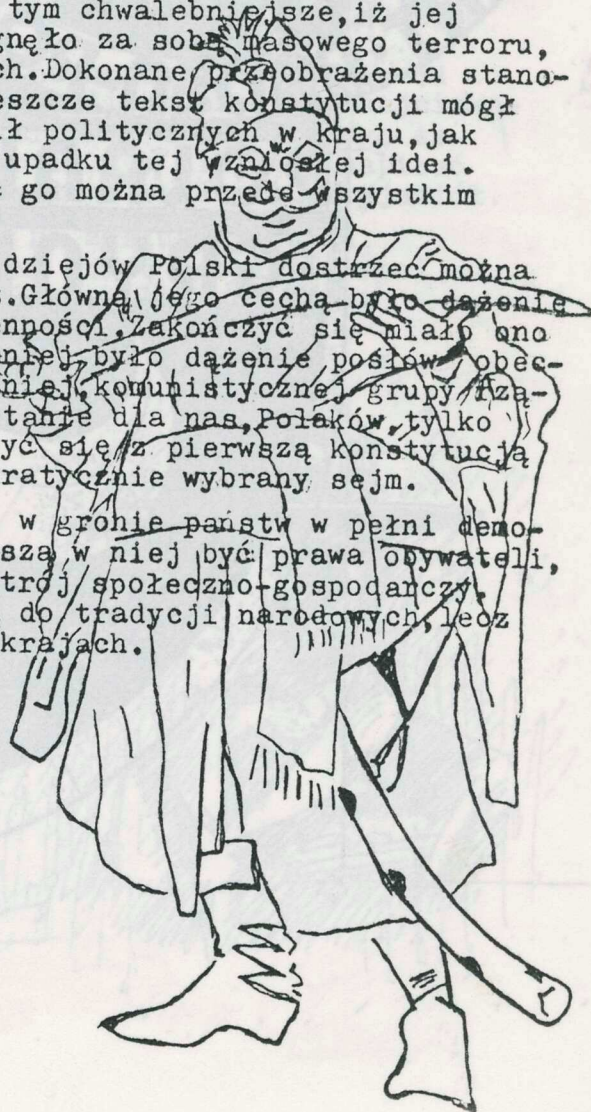 tym chwalebniejsze,iż jej
gnęło za sobą masowego terroru,
ch.Dokonane przeobrażenia stano-
eszcze tekst konstytucji mógł
ił politycznych w kraju,jak
upadku tej wzniosłej idei.
go można przede wszystkim
dziejów Polski dostrzec można
.Główną jego cechą było dążenie
enności.Zakończyć się miało ono
niej było dążenie posłów obec-
niej,komunistycznej grupy rzą-
tanie dla nas,Polaków,tylko
yć się z pierwszą konstytucją
ratycznie wybrany sejm.
w gronie państw w pełni demo-
szą w niej być prawa obywateli,
trój społeczno-gospodarczy.
do tradycji narodowych,lecz
krajach.